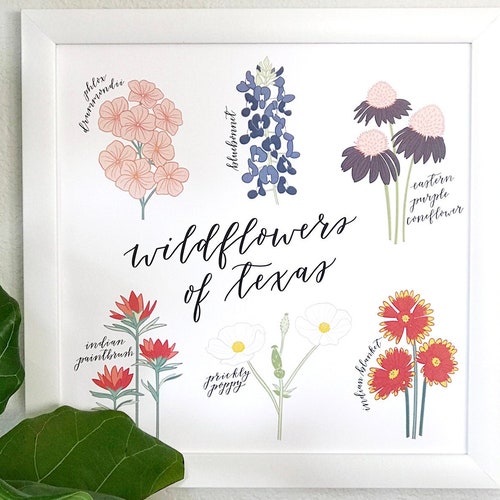 phlox
drummondii
bluebonnet
eastern
purple
coneflower
wildflowers
of texas
indian
paintbrush
prickly
poppy
indian blanket